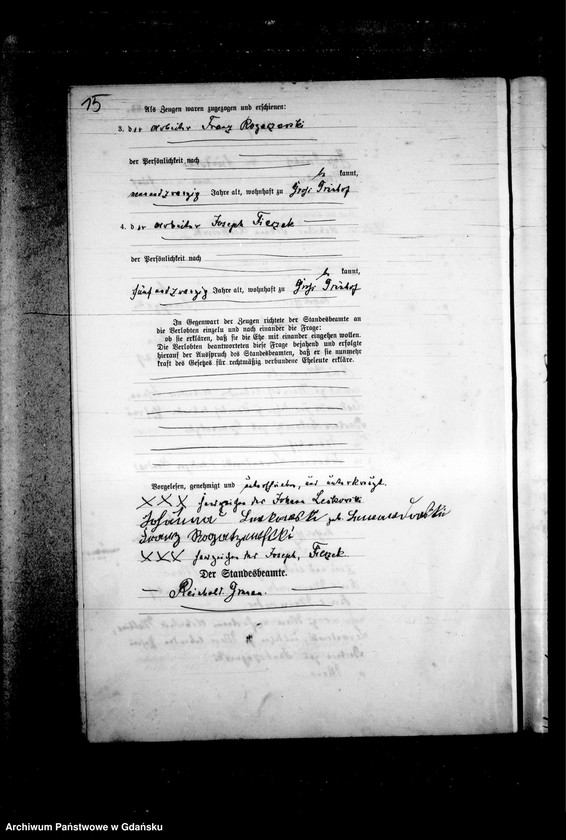 15
Als Zeugen waren zugezogen und erschienen:
3. der Arbeiter Franz Rogaczewski
der Persönlichkeit nach
be kannt,
neunundzwanzig Jahre alt, wohnhaft zu Groß
4. der Arbeiter Joseph Fierzek
der Persönlichkeit nach
be kannt,
fünfundzwanzig Jahre alt, wohnhaft zu Groß
In Gegenwart der Zeugen richtete der Standesbeamte an
die Verlobten einzeln und nach einander die Frage:
ob sie erklären, daß sie die Ehe mit einander eingehen wollen.
Die Verlobten beantworteten diese Frage bejahend und erfolgte
hierauf der Ausspruch des Standesbeamten, daß er sie nunmehr
kraft des Gesetzes für rechtmäßig verbundene Eheleute erkläre.
Vorgelesen, genehmigt und unterschrieben, und unterkreuzt.
XXX Handzeichen des Johann
Johanna geb.
Franz
XXX Handzeichen des Joseph Fierzek
Der Standesbeamte.
Reinhold
Archiwum Państwowe w Gdańsku